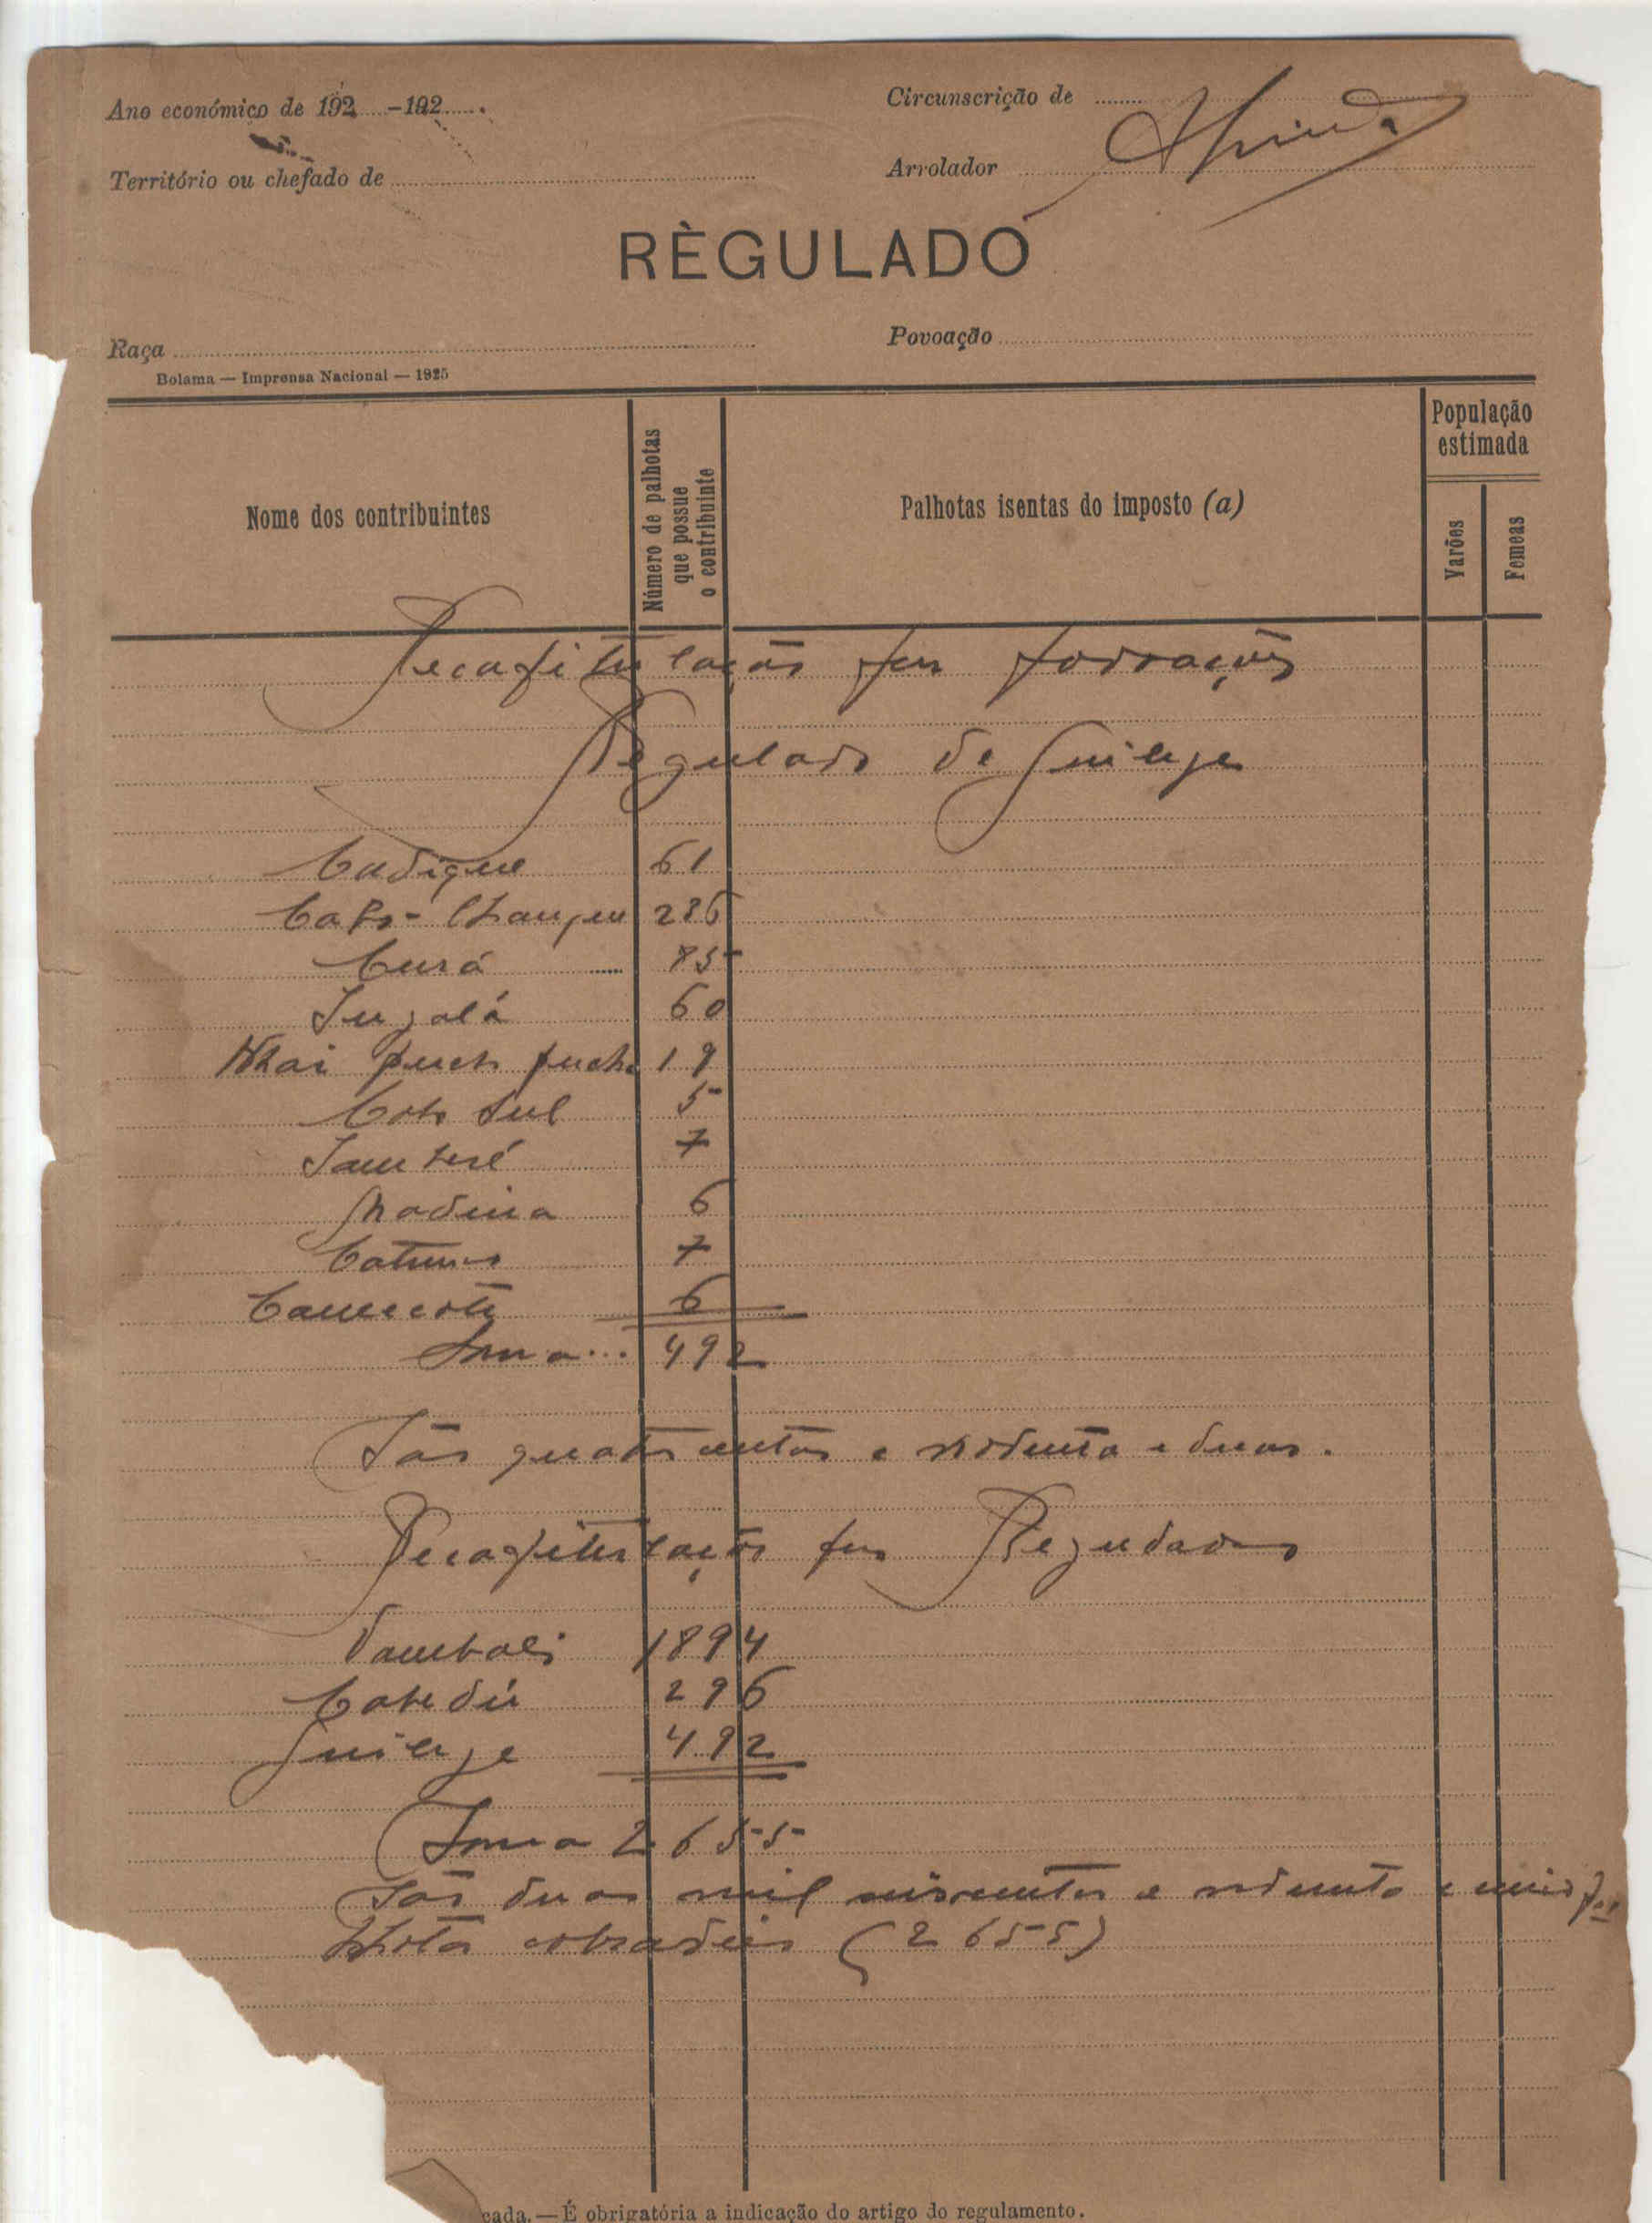 Ano económico de 192.....-192.....
Circunscrição de
Território ou chefado de
Arrolador
RÈGULADO
Raça
Povoação
Bolama — Imprensa Nacional — 1925
Nome dos contribuintes
Número de palhotas que possue o contribuinte
Palhotas isentas do imposto (a)
População estimada
Varões
Femeas
Recapitulação por povoações
Regulado de Guileje
Cadique 61
Cabo-Changue
Curá 85
Ingalá 60
puch puch 19
Coto Sul 5
7
Madina 6
7
6
Soma... 492
São quatrocentos e noventa e duas.
Recapitulação por Regulados
1894
296
Guileje 492
Soma 2655
São duas mil seiscentos e e
lhotas (2655)
cada.—É obrigatória a indicação do artigo do regulamento.